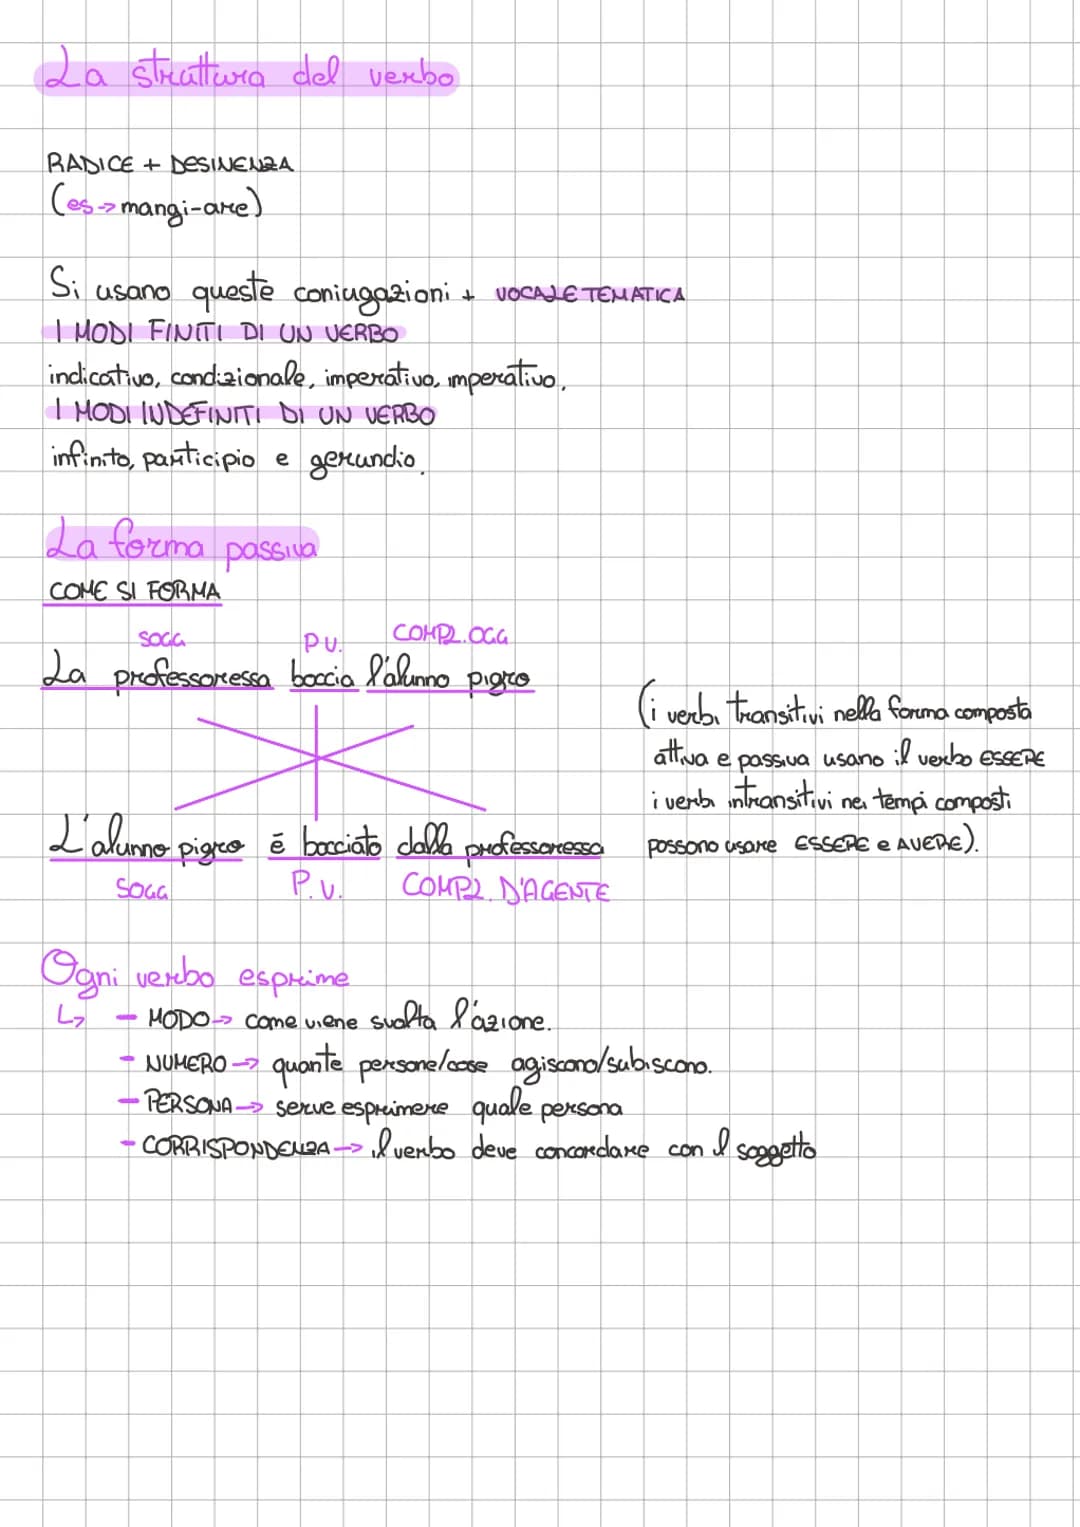 La struttura del verbo
RADICE + DESINENZA
(es -> mangi-are)
Si usano queste coniugazioni + VOCALE TEMATICA
I MODI FINITI DI UN VERBO
indicativo, condizionale, imperativo, imperativo.
I MODI INDEFINITI DI UN VERBO
infinito, participio e gerundio.
La forma passiva
COME SI FORMA
SOGG P.V. COMPL.OGG
La professoressa boccia l'alunno pigro
(i verbi transitivi nella forma composta
attiva e passiva usano il verbo ESSERE
i verbi intransitivi nei tempi composti
possono usare ESSERE e AVERE).
L'alunno pigro è bocciato dalla professoressa
SOGG P.V. COMPL. D'AGENTE
Ogni verbo esprime
↳ - MODO -> come viene svolta l'azione.
- NUMERO -> quante persone/cose agiscono/subiscono.
- PERSONA -> serve esprimere quale persona
- CORRISPONDENZA -> il verbo deve concordare con il soggetto